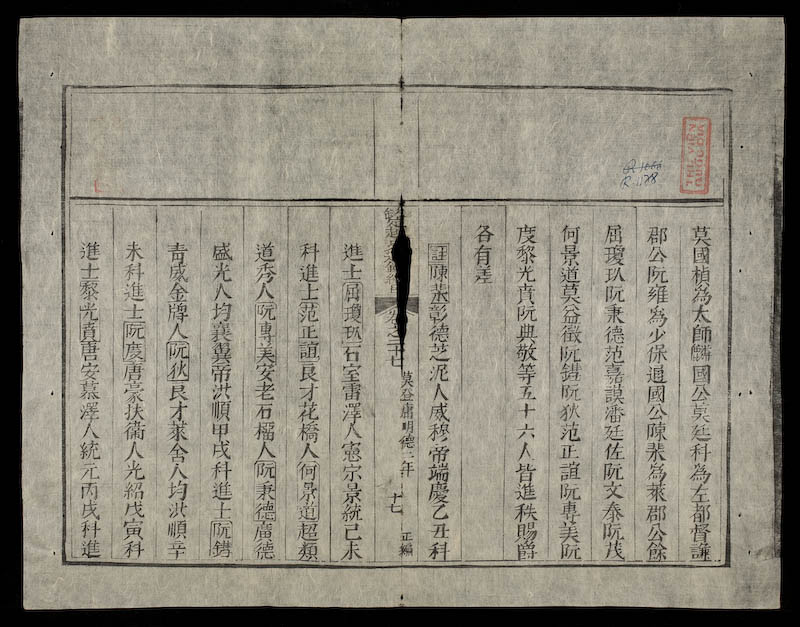 莫國楨為太師麟國公莫廷科為左都督謙
郡公阮雍為少保通國公陳裴為萊郡公餘
屈瓊玖阮秉德范嘉謨潘廷佐阮文泰阮茂
何景道莫益徵阮鐯阮狄范正誼阮專美阮
度黎光賁阮典敬等五十六人皆進秩賜爵
各有差
註陳裴彰德芝泥人威穆帝端慶乙丑科
莫登庸明德三年 十七 正編
進士屈瓊玖石室雷澤人憲宗景統己未
科進士范正誼良才花橋人何景道超類
道秀人阮專美安老石榴人阮秉德廣德
盛光人均襄翼帝洪順甲戌科進士阮鐯
青威金牌人阮狄良才萊舍人均洪順辛
未科進士阮度唐豪扶衛人光紹戊寅科
進士黎光賁唐安慕澤人統元丙戌科進